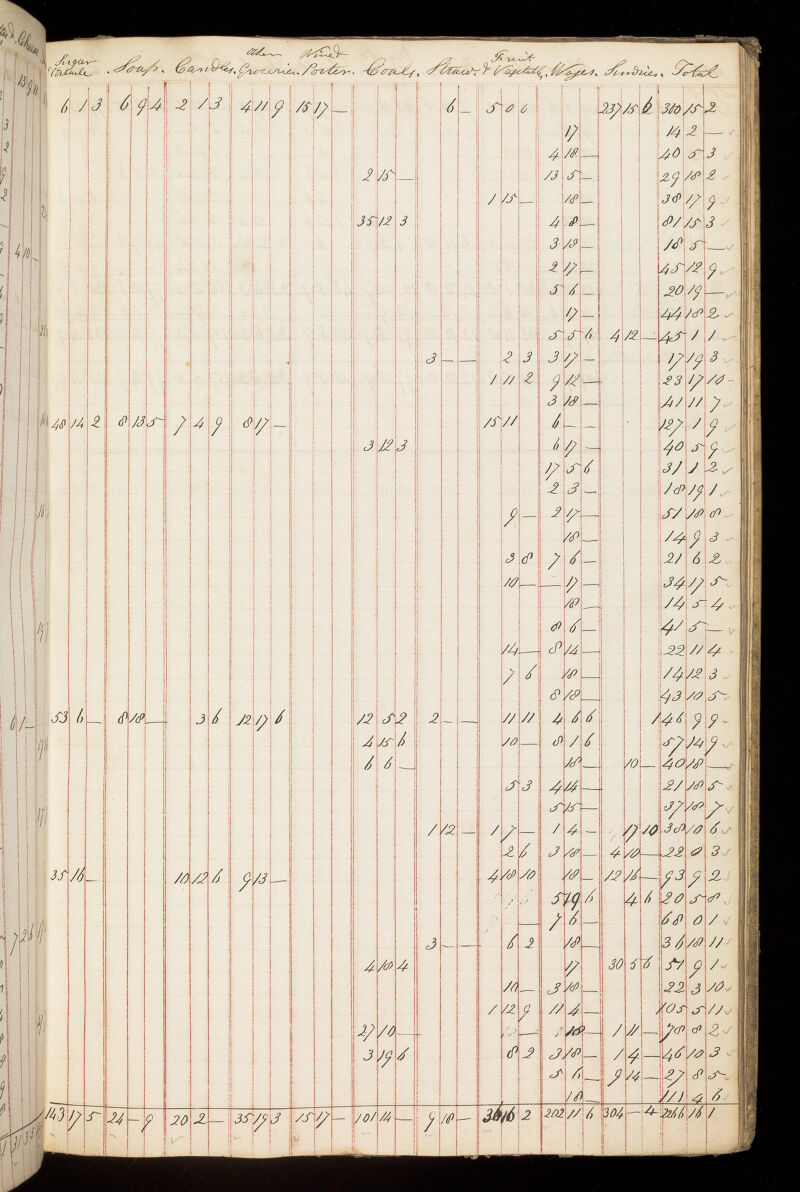 Other Wine &
Sugar Fruit
Treacle Soap. Candles. Groceries. Porter. Coals. Straw. & Vegetables. Wages. Sundries. Total
6 1 3 6 9 4 2 1 3 4 11 9 15 17 — 6 — 5 0 6 237 15 6 300 15 2
17 14 2 —
4 18 — 40 5 3
2 15 — 13 5 — 29 18 2
1 15 — 18 — 38 17 9
35 12 3 4 8 — 81 15 3
3 18 — 18 5 —
2 17 — 45 12 9
5 6 — 20 19 —
17 — 44 18 2
5 5 6 4 12 — 45 1 1
3 — — 2 3 3 17 — 17 19 3
1 11 2 9 12 — 23 17 10
3 18 — 41 11 7
48 14 2 8 13 5 7 4 9 8 17 — 15 11 6 — — 127 1 9
3 12 3 6 17 — 40 5 9
17 5 6 31 1 2
2 3 — 18 19 1
9 — 2 17 — 51 18 8
18 — 14 9 3
3 8 7 6 — 21 6 2
10 — — 17 — 34 17 5
18 — 14 5 4
8 6 — 41 5 —
14 — 8 14 — 22 11 4
7 6 18 — 14 12 3
8 18 — 43 10 5
53 6 — 8 18 — 3 6 12 17 6 12 5 2 2 — — 11 11 4 6 6 146 9 9
4 15 6 10 — 8 1 6 57 14 9
6 6 — 18 — 10 — 40 18 —
5 3 4 14 — 21 18 5
5 15 — 37 18 7
1 12 — 1 7 — 1 4 — 17 10 38 10 6
2 6 3 18 — 4 10 — 22 0 3
35 16 — 10 12 6 9 13 — 4 18 10 18 — 12 16 — 93 9 2
5 19 6 4 6 20 5 8
— 7 6 — 68 0 1
3 — — 6 2 18 — 36 18 11
4 18 4 17 30 5 6 51 9 1
10 — 3 18 — 22 3 10
1 12 9 11 4 — 105 5 11
27 10 — — 18 — 1 11 — 78 8 2
3 19 6 8 2 3 18 — 1 4 — 46 10 3
5 6 — 9 14 — 27 8 5
18 — 111 4 6
143 17 5 24 — 9 20 2 — 35 19 3 15 17 — 101 14 — 9 18 — 36 16 2 202 11 6 304 — 4 2266 16 1